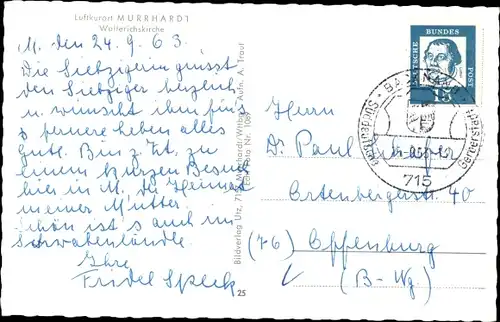 Luftkurort MURRHARDT
Walterichskirche
M. den 24. 9. 63.
Die Siebzigerin grüsst
den Siebziger herzlich
u. wünscht ihm für's
fernere Leben alles
Gute. Bin z. Zt. zu
einem kurzen Besuche
hier in M. der Heimat
meiner Mutter
schön ist's auch im
Schwabenländle.
Ihre
Fridel Speck
Bildverlag Utz, Murrhardt-Württ. Aufn. A. Trauf
Foto Nr. 1069
25
DEUTSCHE BUNDES POST
15
BACKNANG
715
Herrn
Dr. Paul
Ortenbergstr. 40
(76) Offenburg
(B-Wg.)